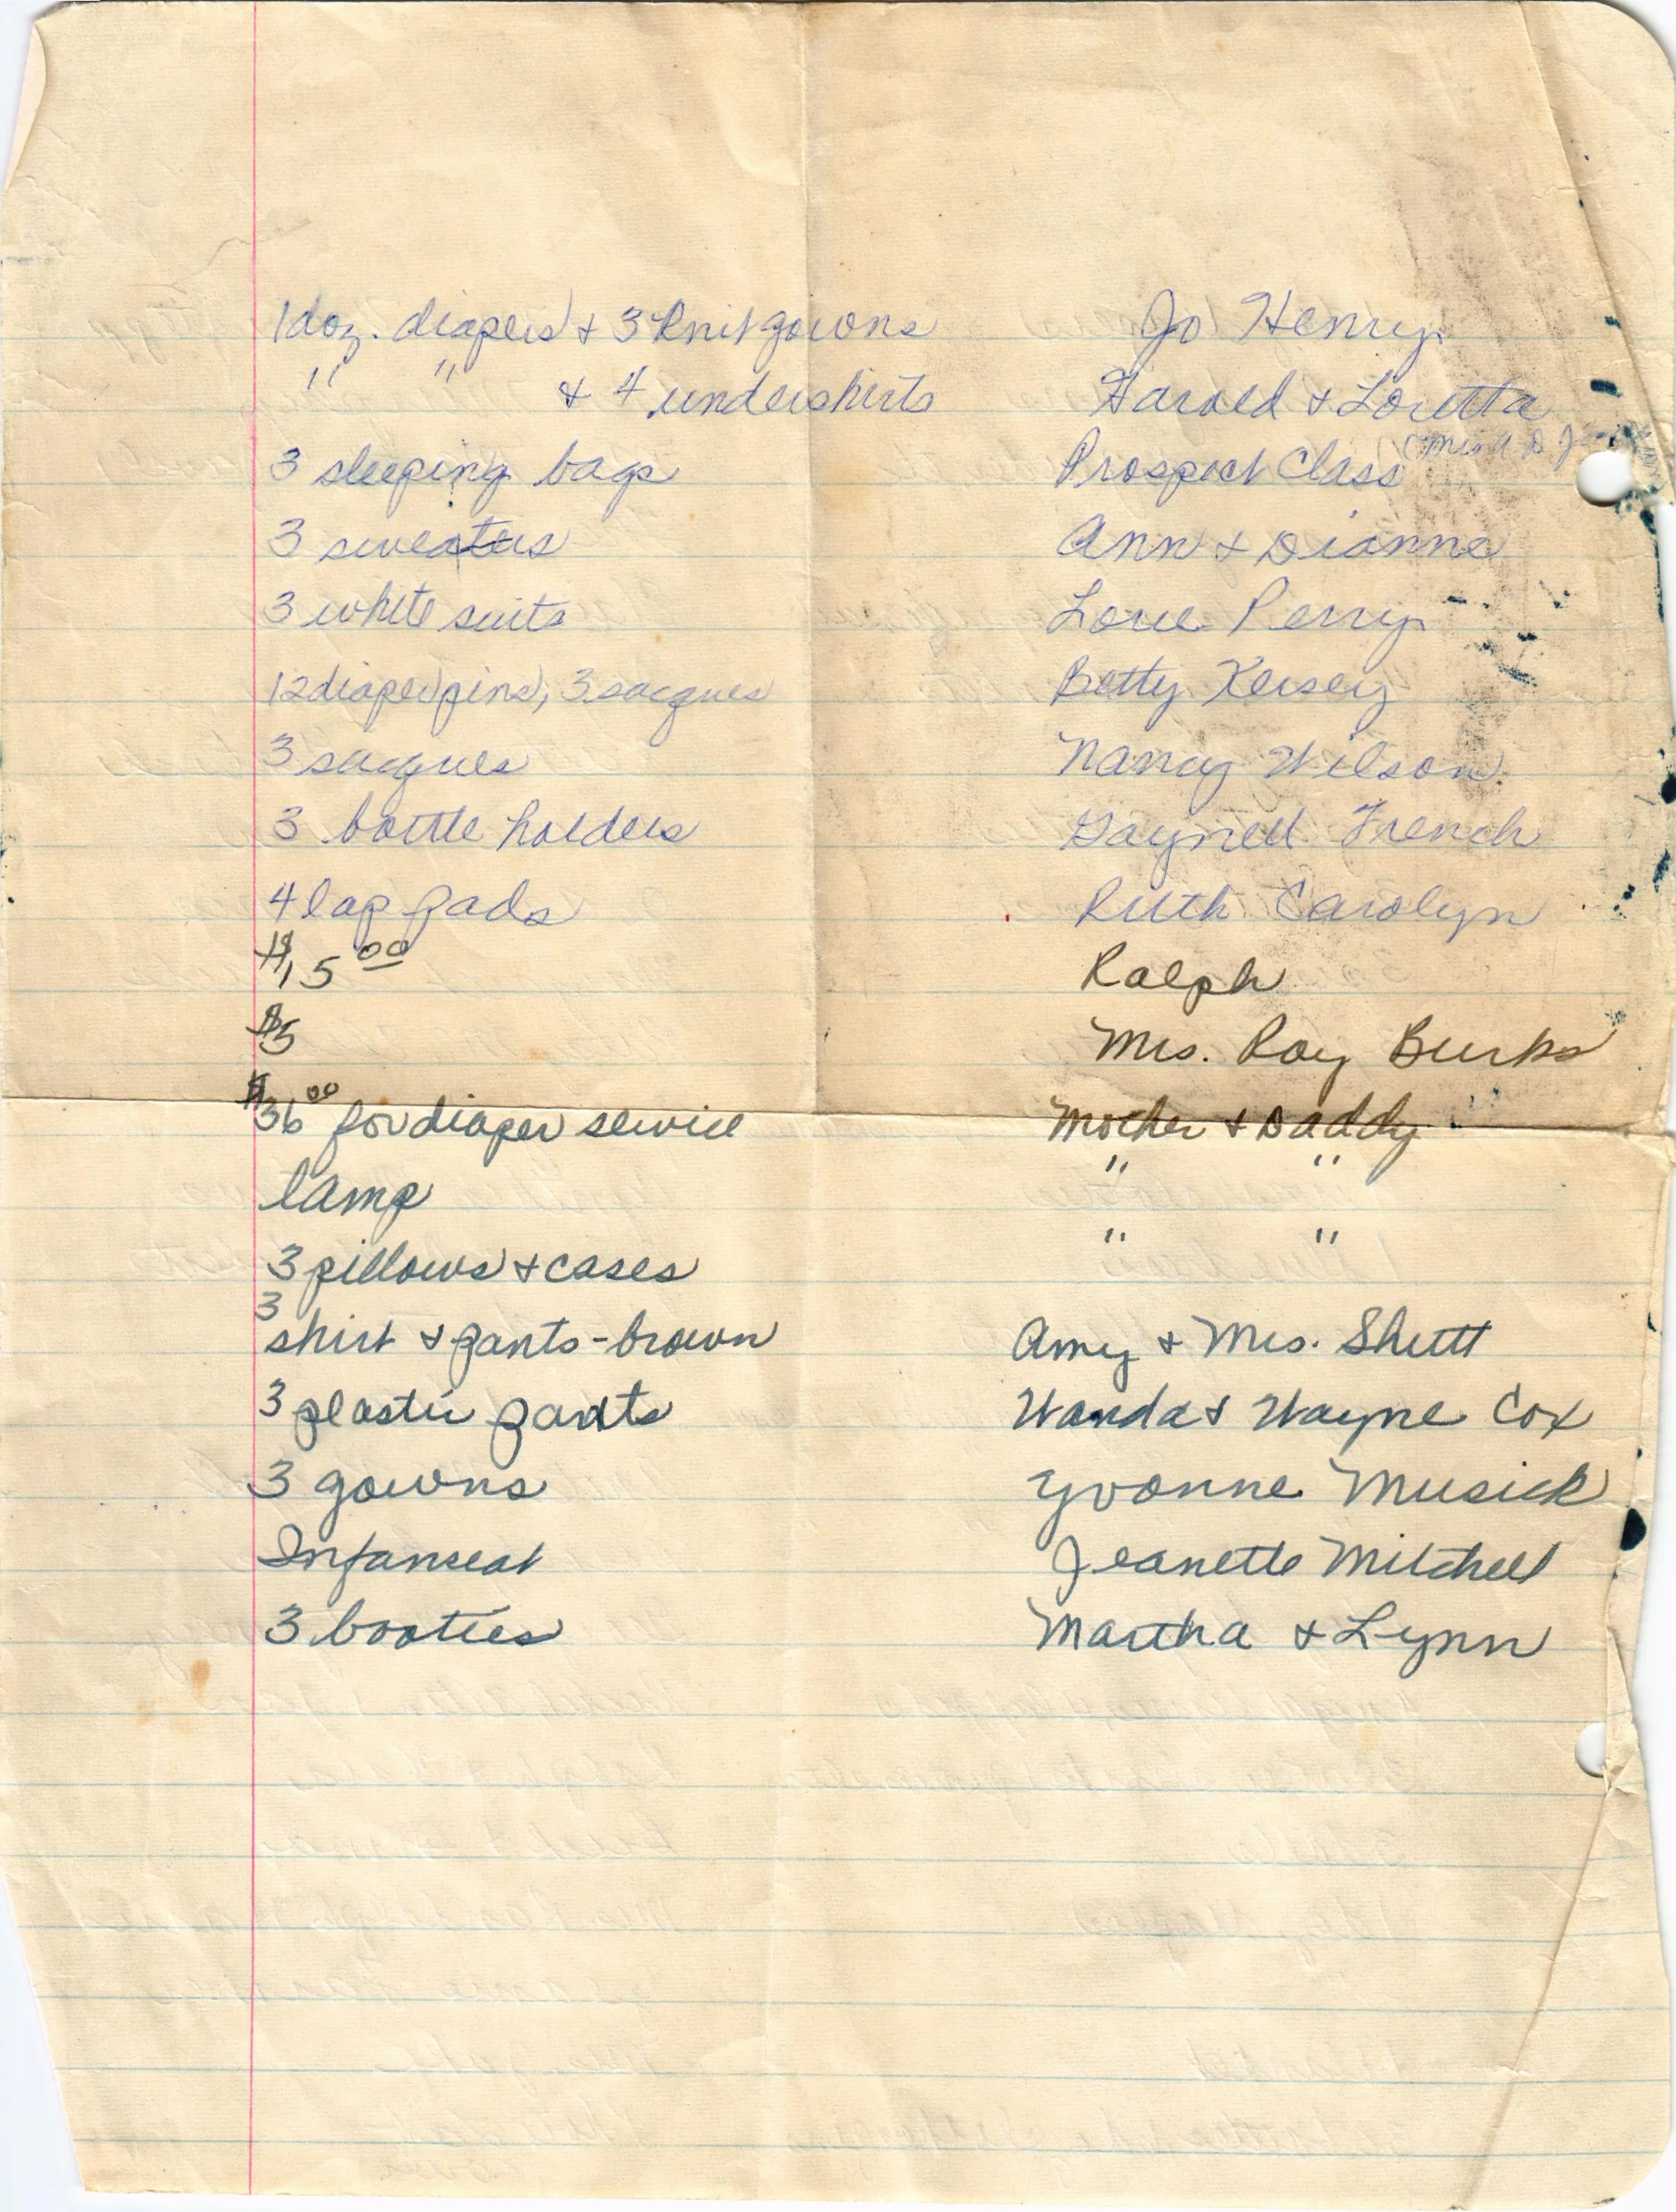 1 doz. diapers + 3 knit gowns Jo Henry
" " + 4 undershirts Harold + Loretta
3 sleeping bags Prospect Class (Mrs. A D
3 sweaters Ann + Dianne
3 white suits Lorie Perry
12 diaper pins, 3 sacques Betty Kersey
3 sacques Nancy Wilson
3 bottle holders Gaynell French
4 lap pads Ruth Carolyn
$15 00 Ralph
$5 Mrs. Roy Burks
$36 00 for diaper service Mother + Daddy
lamp " "
3 pillows + cases " "
3 shirt + pants - brown Amy + Mrs. Shutt
3 plastic pants Wanda + Wayne Cox
3 gowns Yvonne Musick
Infanseat Jeanette Mitchell
3 booties Martha + Lynn